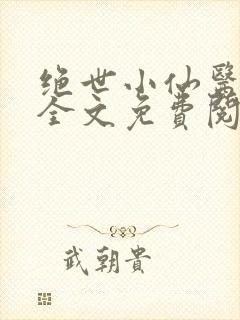 绝世小仙醫
全文免費閱
武朝貴